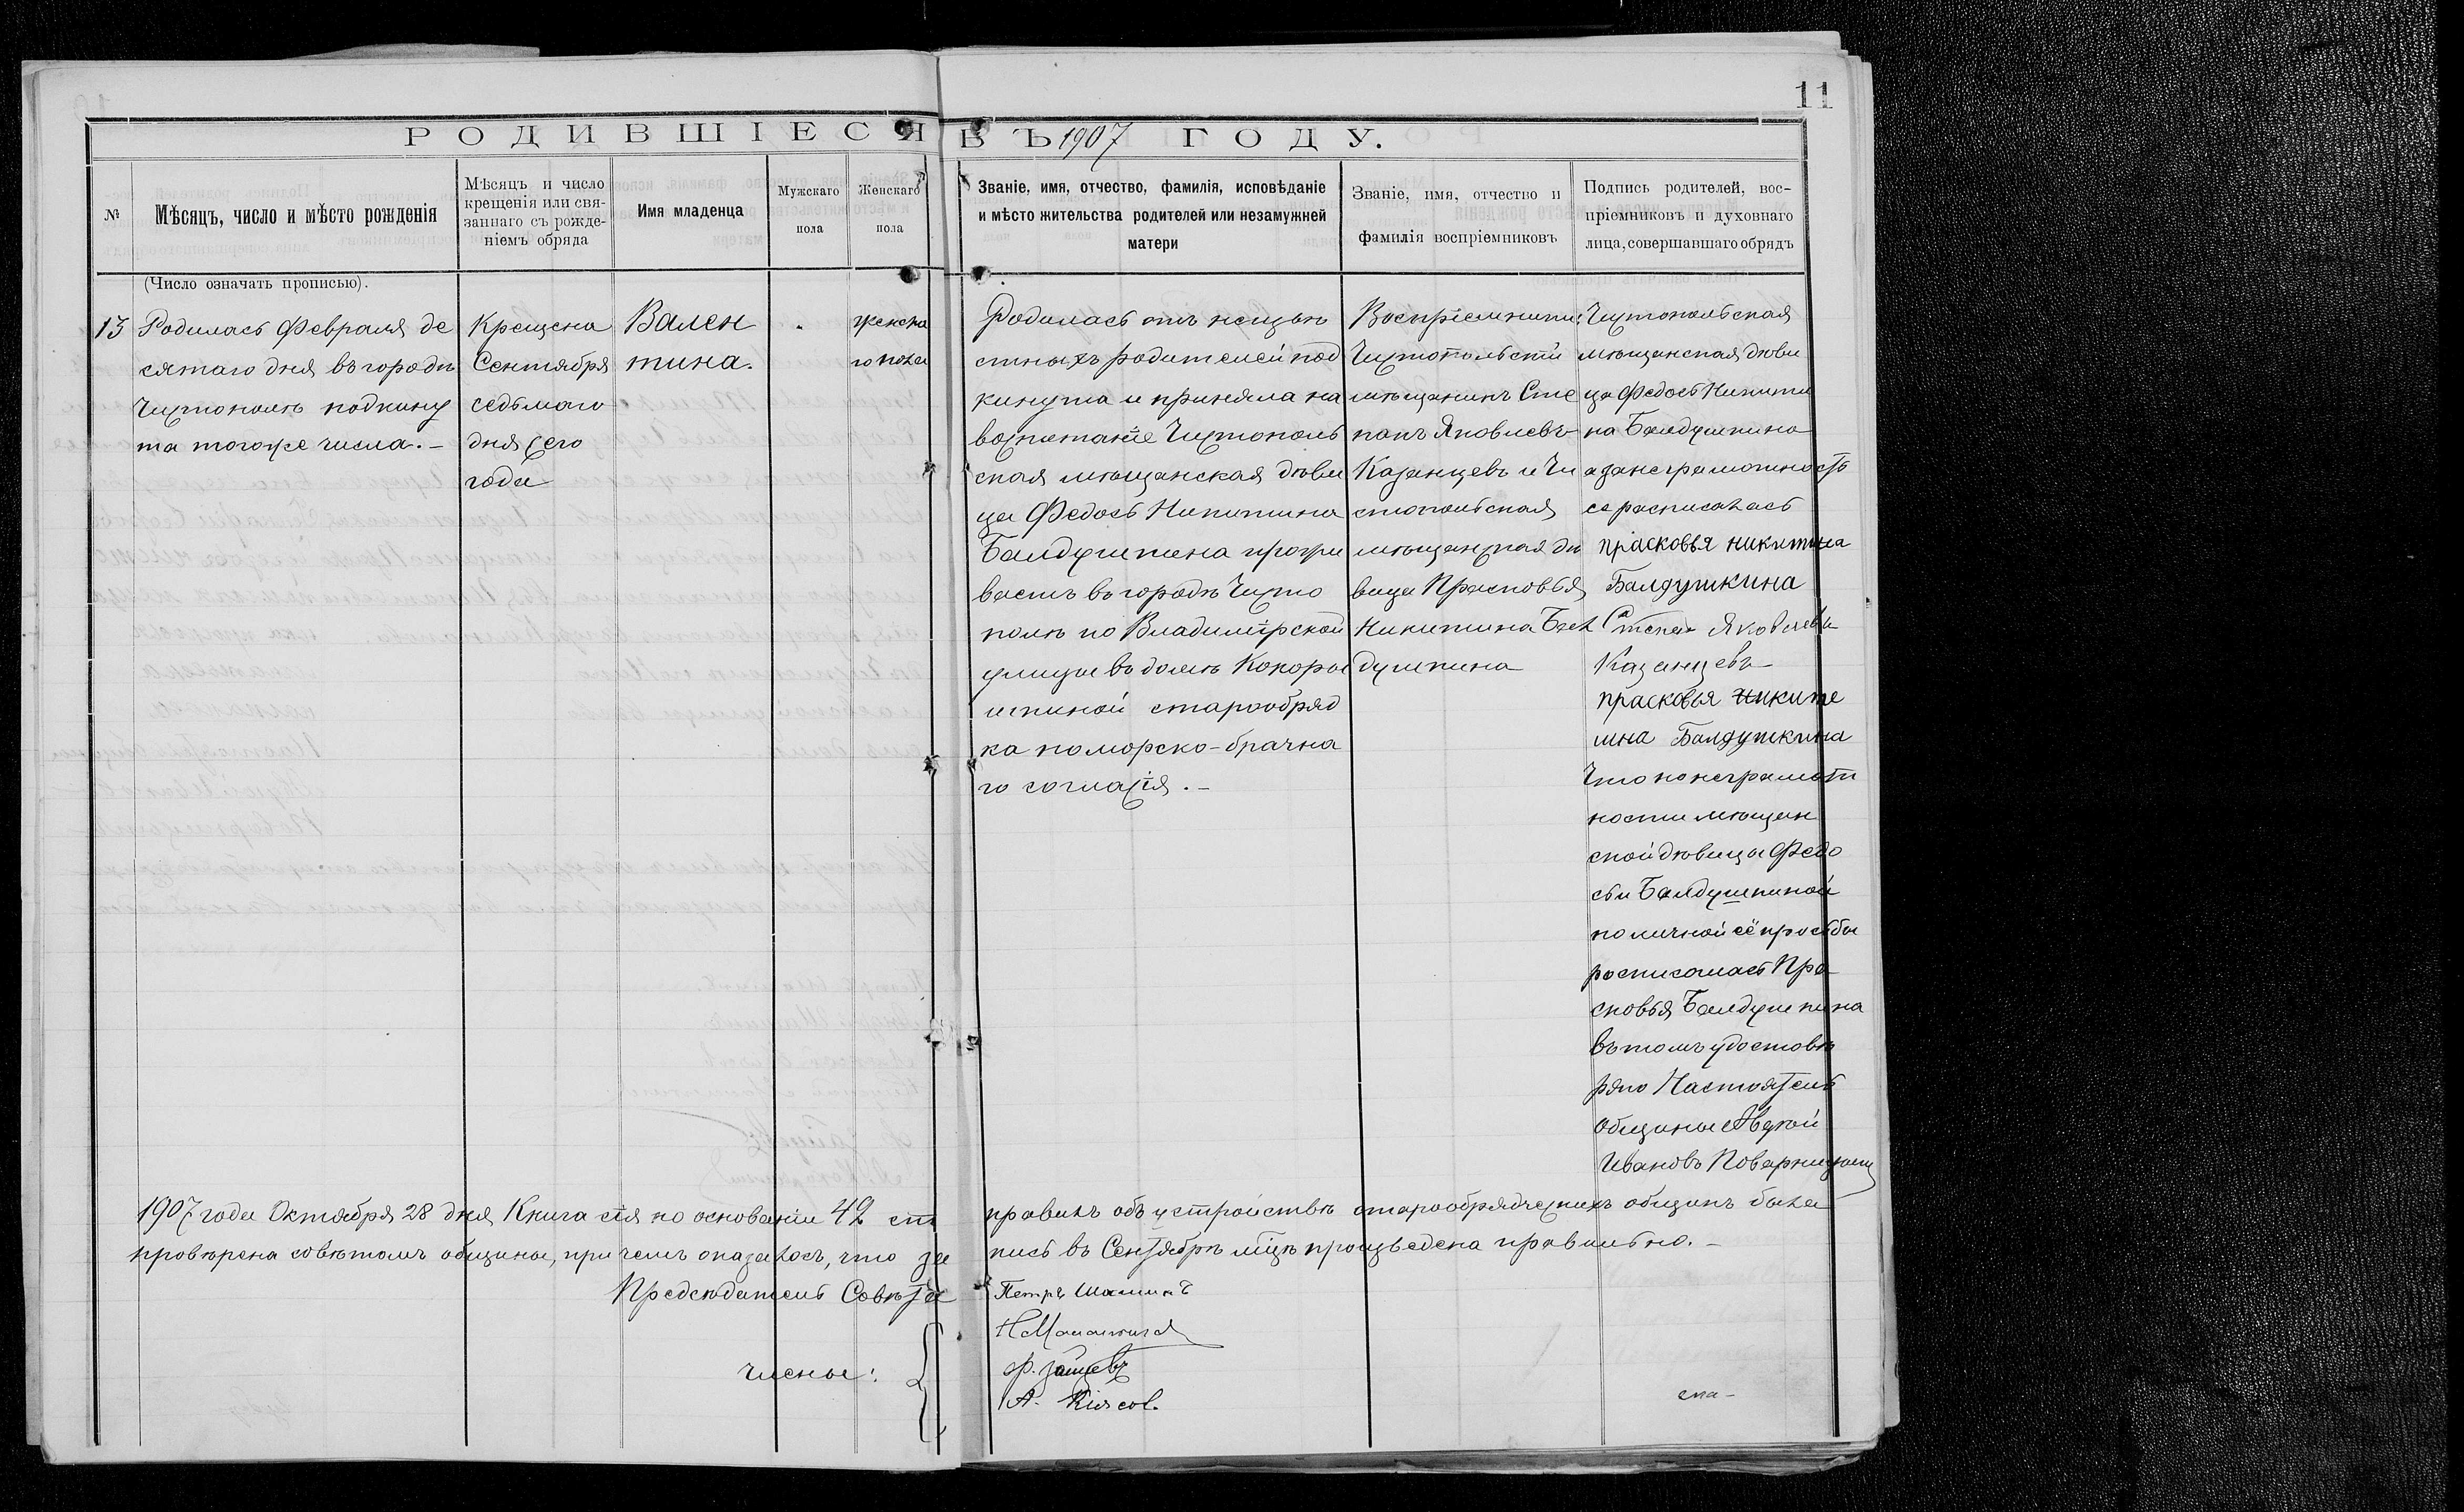 11
РОДИВШІЕСЯ ВЪ 1907 ГОДУ.
№
Мѣсяцъ, число и мѣсто рожденія
Мѣсяцъ и число
крещенія или свя-
заннаго съ рожде-
ніемъ обряда
Имя младенца
Мужскаго
пола
Женскаго
пола
Званіе, имя, отчество, фамилія, исповѣданіе
и мѣсто жительства родителей или незамужней
матери
Званіе, имя, отчество и
фамилія воспріемниковъ
Подпись родителей, вос-
пріемниковъ и духовнаго
лица, совершавшаго обрядъ
(Число означать прописью).
13
Родилась Февраля де
сятаго дня въ городѣ
Чистополѣ подкину
та тогоже числа.-
Крещена
Сентября
седьмаго
дня сего
года
Вален
тина.
женска
го пола
Родилась отъ неизвѣ
стныхъ родителей под
кинута и приняла на
воспитаніе Чистополь
ская мѣщанская дѣви
ца Федось Никитина
Балдушкина прожи
ваетъ въ городѣ Чисто
полѣ по Владимірской
улицы въ домѣ Кокоры
шкиной старообряд
ка поморско-брачна
го согласія.-
Воспріемники:
Чистопольскій
мѣщанинъ Сте
панъ Яковлевъ
Казанцевъ и Чи
стопольская
мѣщанская дѣ
вица Прасковья
Никитина Бал
душкина
Чистопольская
мѣщанская дѣви
ца Федось Никити
на Балдушкина
а за неграмотность
ее расписалась
прасковья никитина
Балдушкина
Степан Яковлевъ
Казанцевъ
прасковья никите
ина Балдушкина
Что по неграмот
ности мѣщан
ской дѣвицы Федо
сьи Балдушкиной
по личной её просьбы
росписалась Пра
сковья Балдушкина
въ томъ удостовѣ
ряю Настоятель
общины Авдей
Ивановъ Поварницынъ
1907 года Октября 28 дня, Книга сія на основаніи 42 ст
правилъ объ устройствѣ старообрядческихъ общинъ была
провѣрена совѣтомъ общины, при чемъ оказалось, что за
пись въ Сентябрѣ мѣцѣ произведена правильно.-
Предсѣдатель Совѣта
Петръ Шашинъ
члены:
Ф. Зайцевъ
А. Кіясов.
ста-